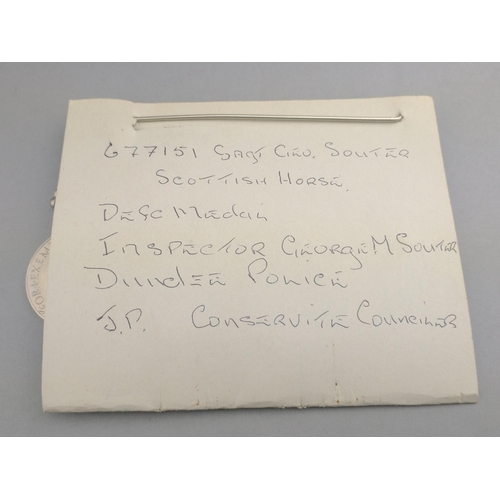 677151 SARJ GEO. SOUTER
SCOTTISH HORSE.
DEFC MEDAL
INSPECTOR GEORGE M SOUTER
DUNDEE POLICE
J.P. CONSERVITE COUNCILER